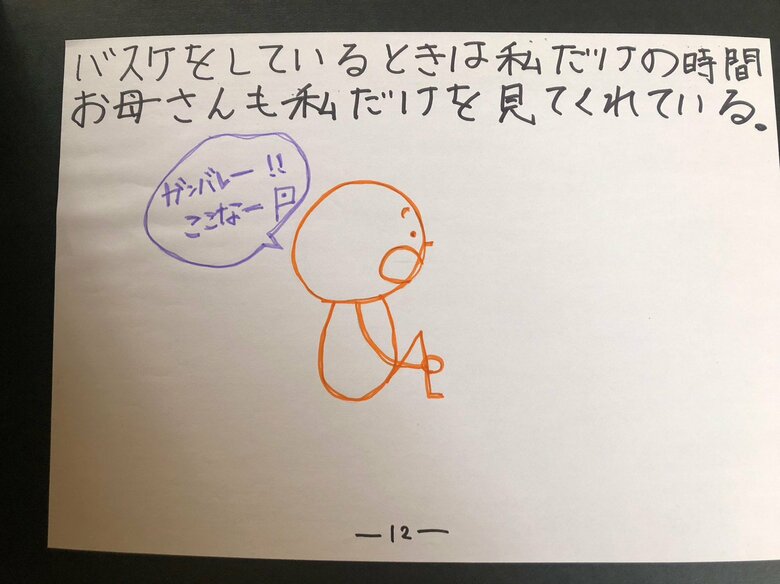 バスケをしているときは私だけの時間
お母さんも私だけを見てくれている。
ガンバレー!!
ここなー
―12―